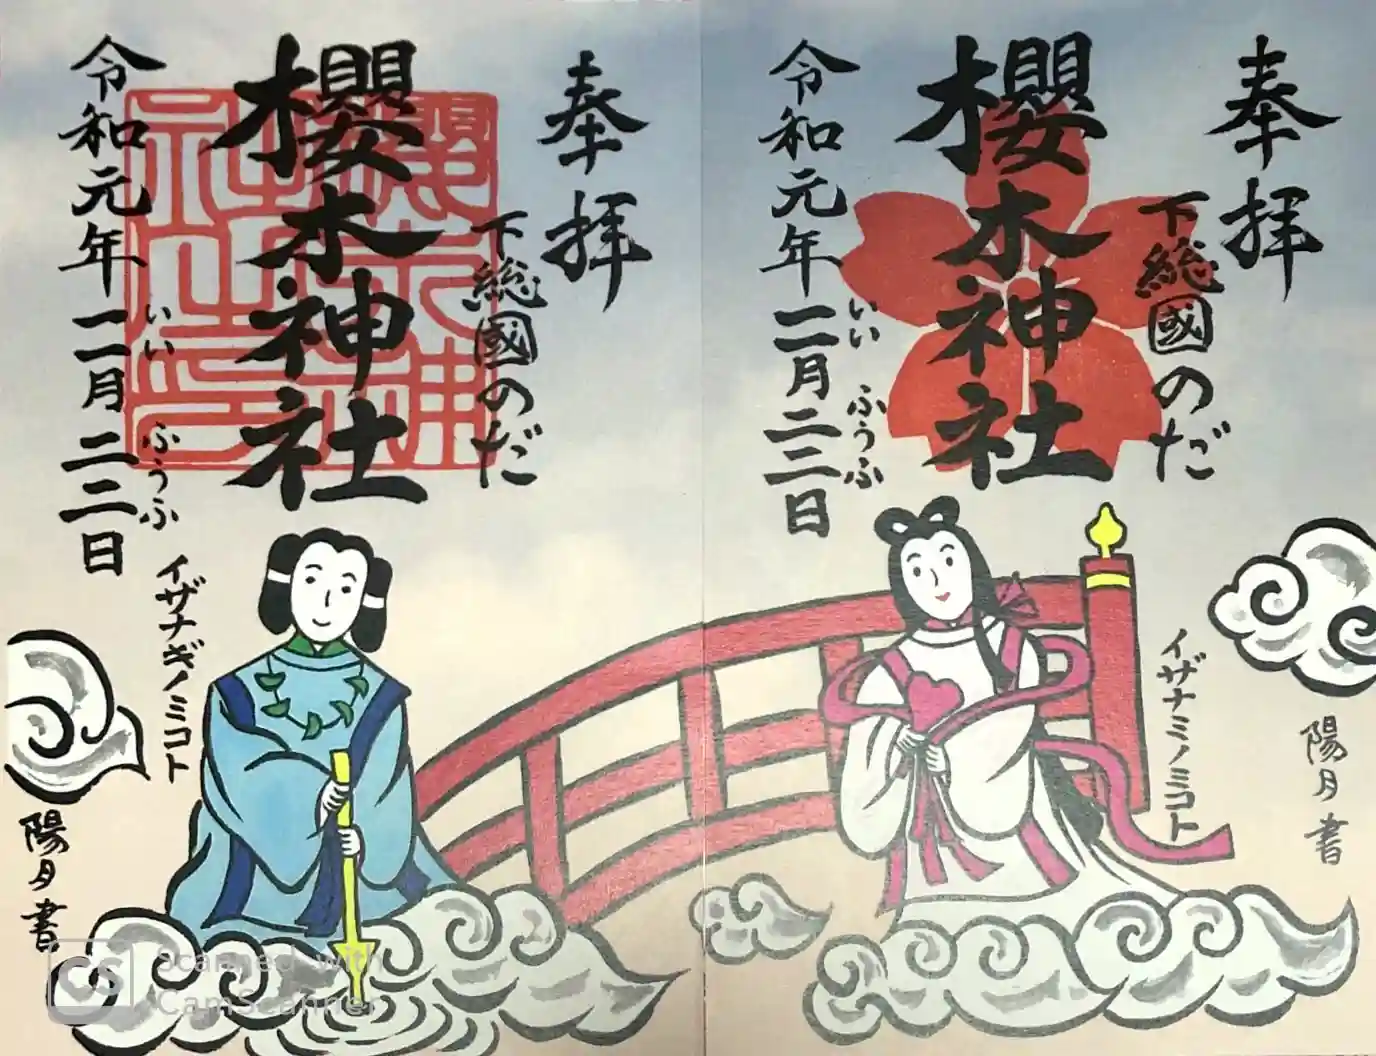 奉拝
下総國のだ
櫻木神社
いい ふうふ
令和元年一一月二二日
イザナミノミコト
陽月書
奉拝
下総國のだ
櫻木神社
櫻木神社之印
いい ふうふ
令和元年一一月二二日
イザナギノミコト
陽月書
CS
Scanned with
CamScanner